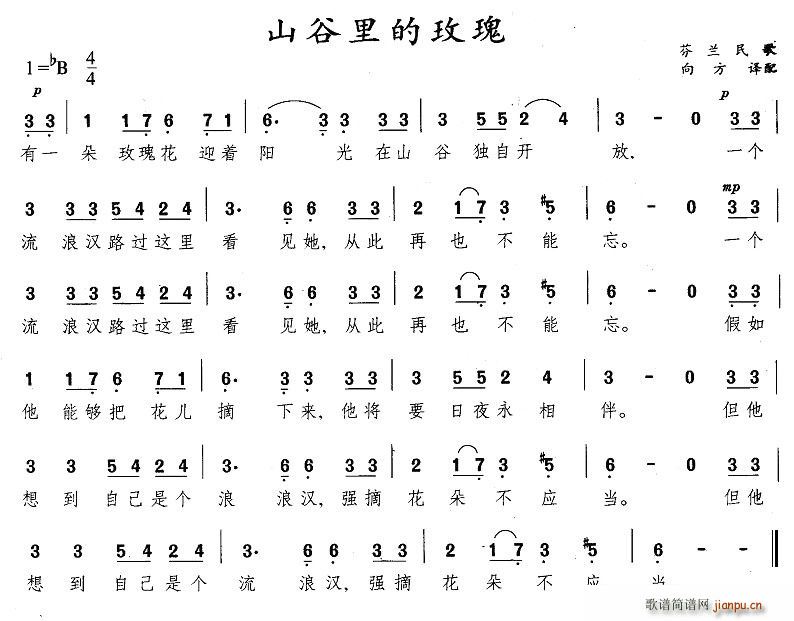 山谷里的玫瑰
芬兰民歌
1=♭B 4/4
向方 译配
p p
3 3 | 1 1 7 6 7 1 | 6· 3 3 3 3 | 3 5 5 2 4 | 3 - 0 3 3 |
有一 朵 玫瑰花 迎着 阳 光 在山 谷 独自开 放, 一个
mp
3 3 3 5 4 2 4 | 3· 6 6 3 3 | 2 1 7 3 #5 | 6 - 0 3 3 |
流 浪汉路过这里 看 见她, 从此 再 也 不 能 忘。 一个
3 3 3 5 4 2 4 | 3· 6 6 3 3 | 2 1 7 3 #5 | 6 - 0 3 3 |
流 浪汉路过这里 看 见她, 从此 再 也 不 能 忘。 假如
1 1 7 6 7 1 | 6· 3 3 3 3 | 3 5 5 2 4 | 3 - 0 3 3 |
他 能够把 花儿 摘 下来, 他将 要 日夜永 相 伴。 但他
3 3 5 4 2 4 | 3· 6 6 3 3 | 2 1 7 3 #5 | 6 - 0 3 3 |
想 到 自己是个 浪 浪汉, 强摘 花 朵 不 应 当。 但他
3 3 5 4 2 4 | 3· 6 6 3 3 | 2 1 7 3 #5 | 6 - - ‖
想 到 自己是个 流 浪汉, 强摘 花 朵 不 应 当
歌谱简谱网 jianpu.cn